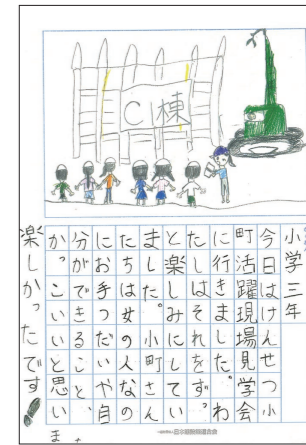 C1棟
小学三年
今日はけんせつ小
町活躍現場見学会
に行きました。わ
たしはそれをずっ
と楽しみにしてい
ました。小町さん
たちは女の人なの
にお手つだいや自
分ができること、
かっこいいと思い
ま
楽しかったです!